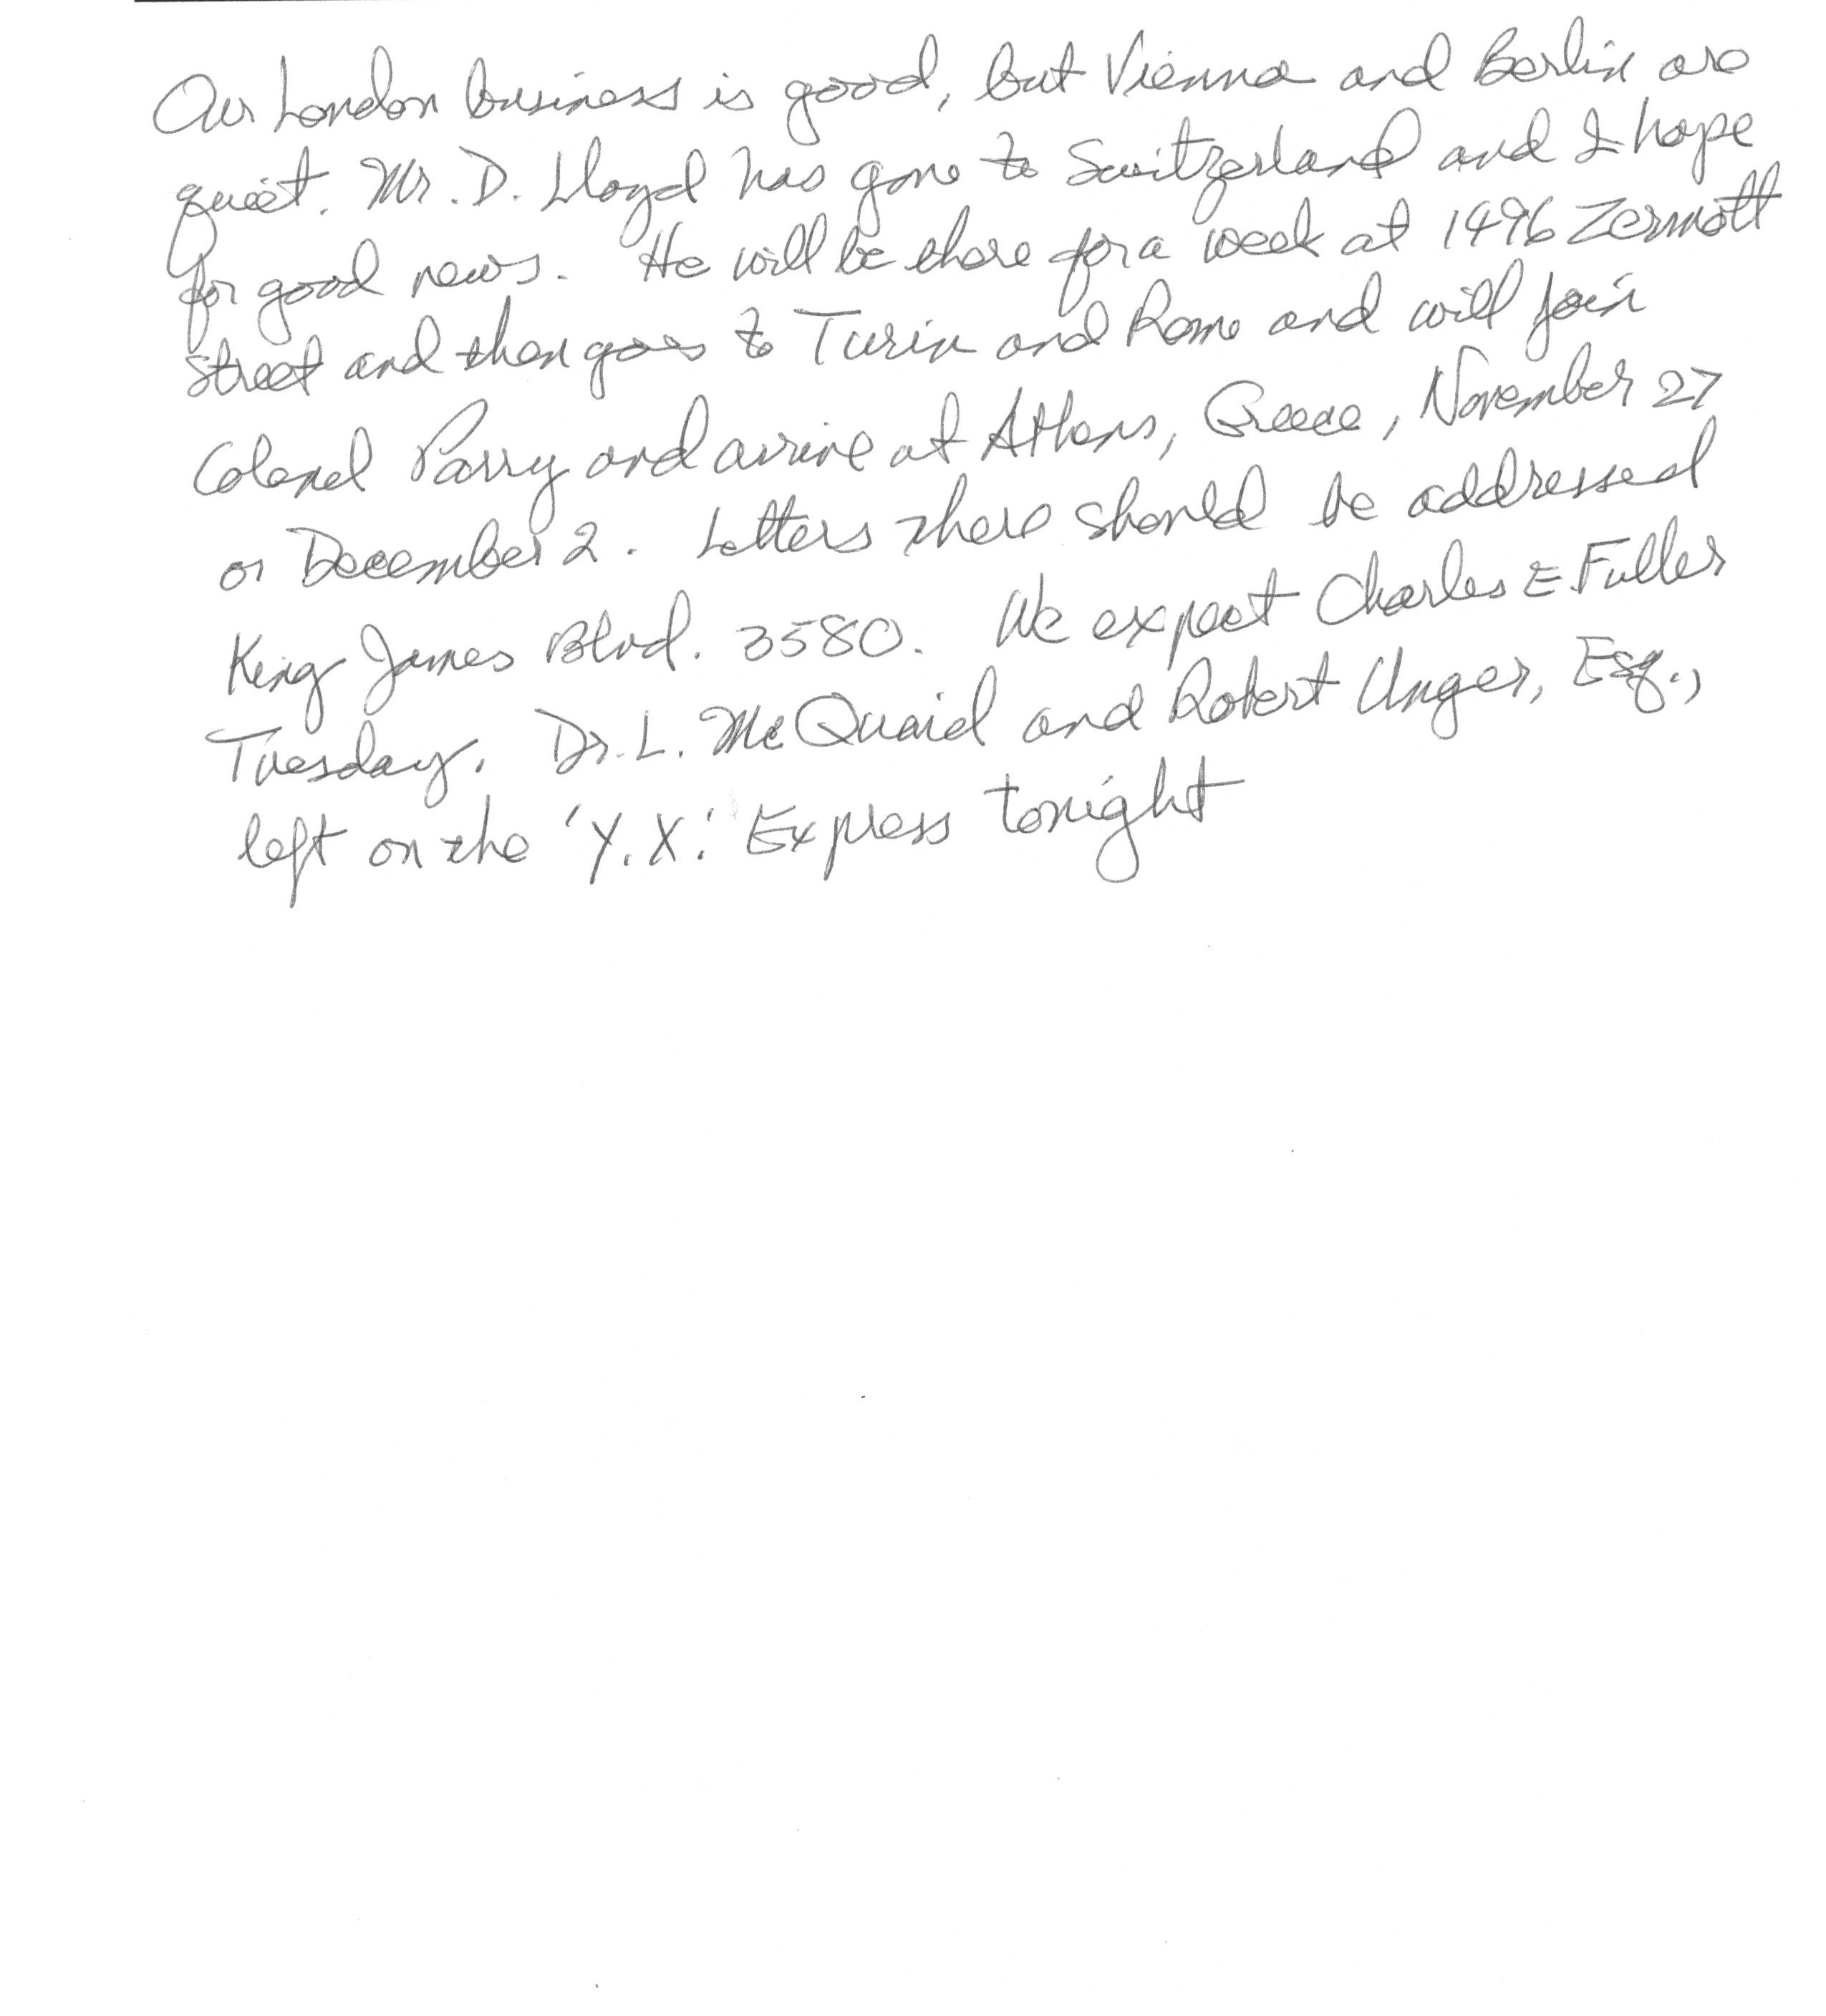 Our London business is good, but Vienna and Berlin are
quiet. Mr. D. Lloyd has gone to Switzerland and I hope
for good news. He will be there for a week at 1496 Zermott
street and then goes to Turin and Rome and will join
Colonel Parry and arrive at Athens, Greece, November 27
or December 2. Letters there should be addressed
King James Blvd. 3580. We expect Charles E. Fuller
Tuesday. Dr. L. McQuaid and Robert Unger, Esq.,
left on the 'Y.X.' Express tonight